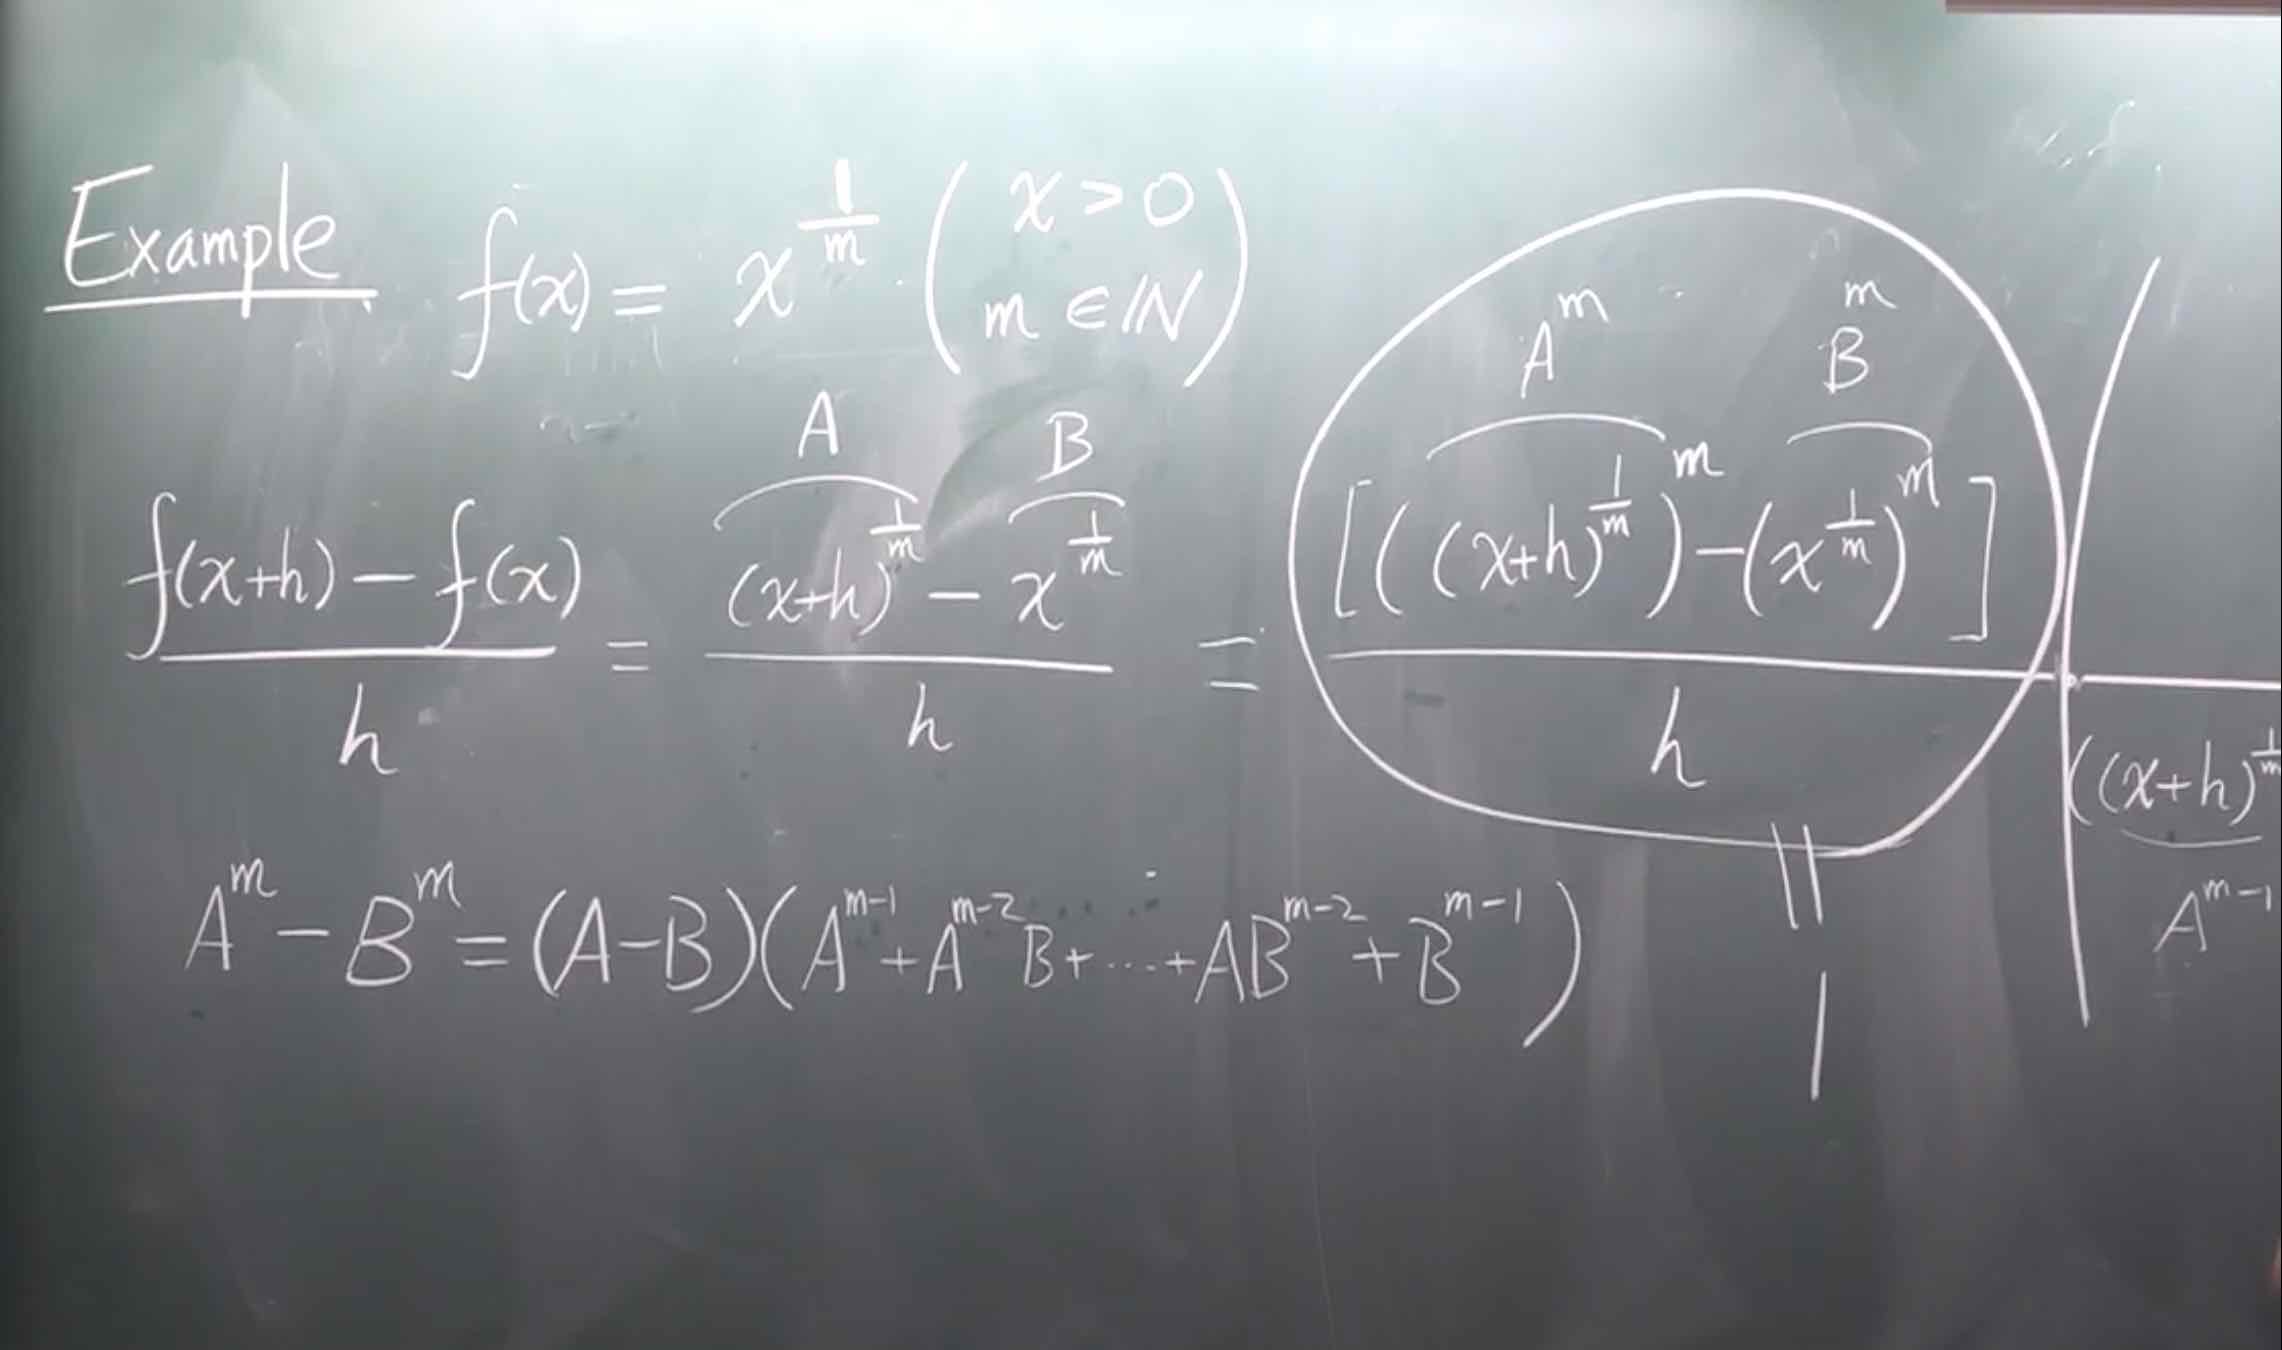 Example. f(x) = x^{1/m}. (x > 0, m ∈ ℕ)
\frac{f(x+h) - f(x)}{h} = \frac{\overbrace{(x+h)^{1/m}}^{A} - \overbrace{x^{1/m}}^{B}}{h} = \frac{[\overbrace{((x+h)^{1/m})^m}^{A^m} - \overbrace{(x^{1/m})^m}^{B^m}]}{h}
‖
1
((x+h)^{1/m}
A^{m-1}
A^m - B^m = (A-B)(A^{m-1} + A^{m-2}B + ... + AB^{m-2} + B^{m-1})